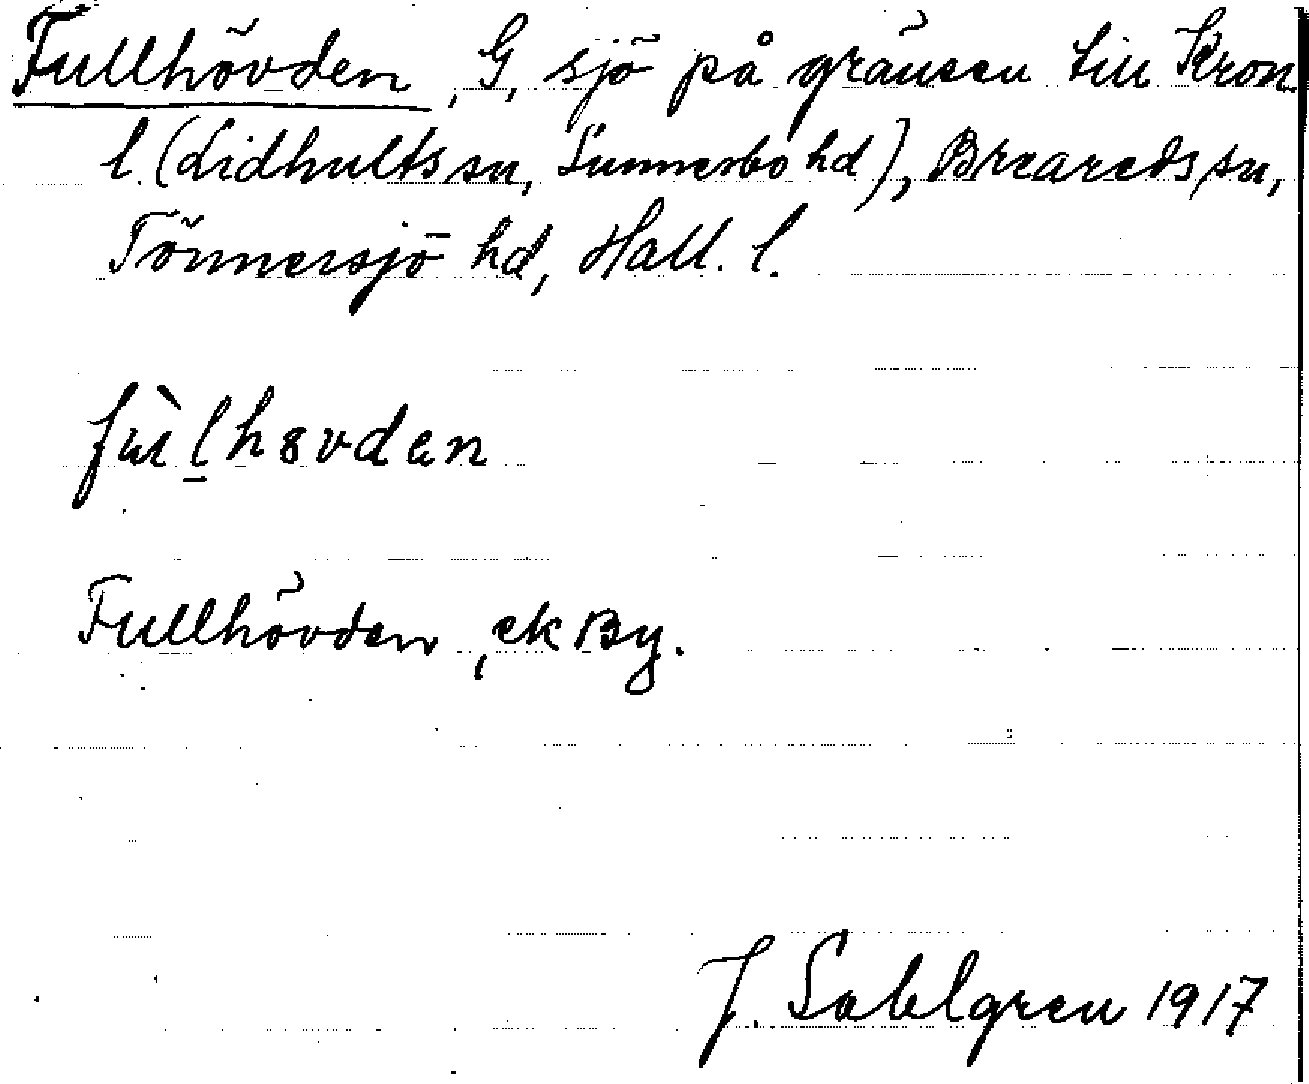 Fullhövden, G, sjö på gränsen till Kron.
l. (Lidhults sn, Sunnerbo hd), Breareds sn,
Tönnersjö hd, Hall. l.
fùl̲hövden
Fullhövden, ek By.
J. Sahlgren 1917